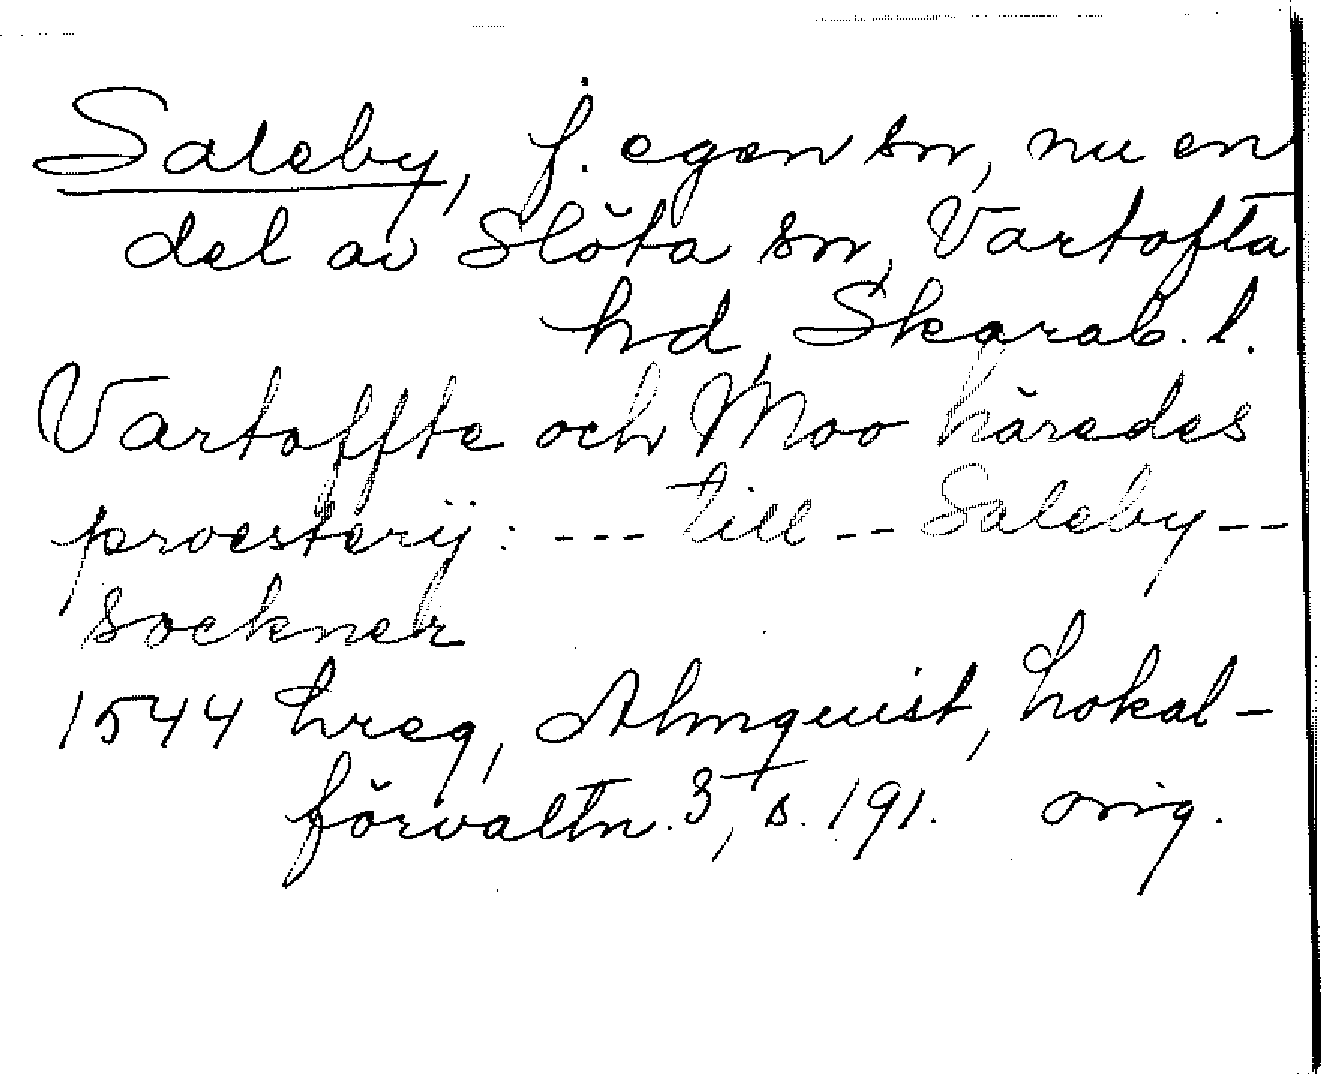 Saleby, f. egen sn, nu en
del av Slöta sn, Vartofta
hd, Skarab. l.
Vartoffte och Moo häredes
proesterij: --- till -- Saleby --
sockner
1544 hreg, Almquist, Lokal-
förvaltn. 3, s. 191. orig.